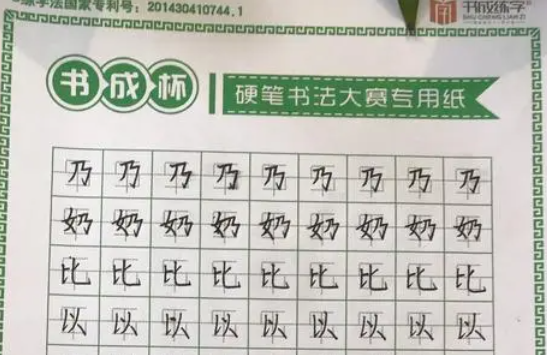 练字法国家专利号：201430410744.1
书成练字
SHU CHENG LIAN ZI
书成杯
硬笔书法大赛专用纸
乃 乃 乃 乃 乃 乃 乃 乃 乃
奶 奶 奶 奶 奶 奶 奶 奶 奶
比 比 比 比 比 比 比 比 比
以 以 以 以 以 以 以 以 以